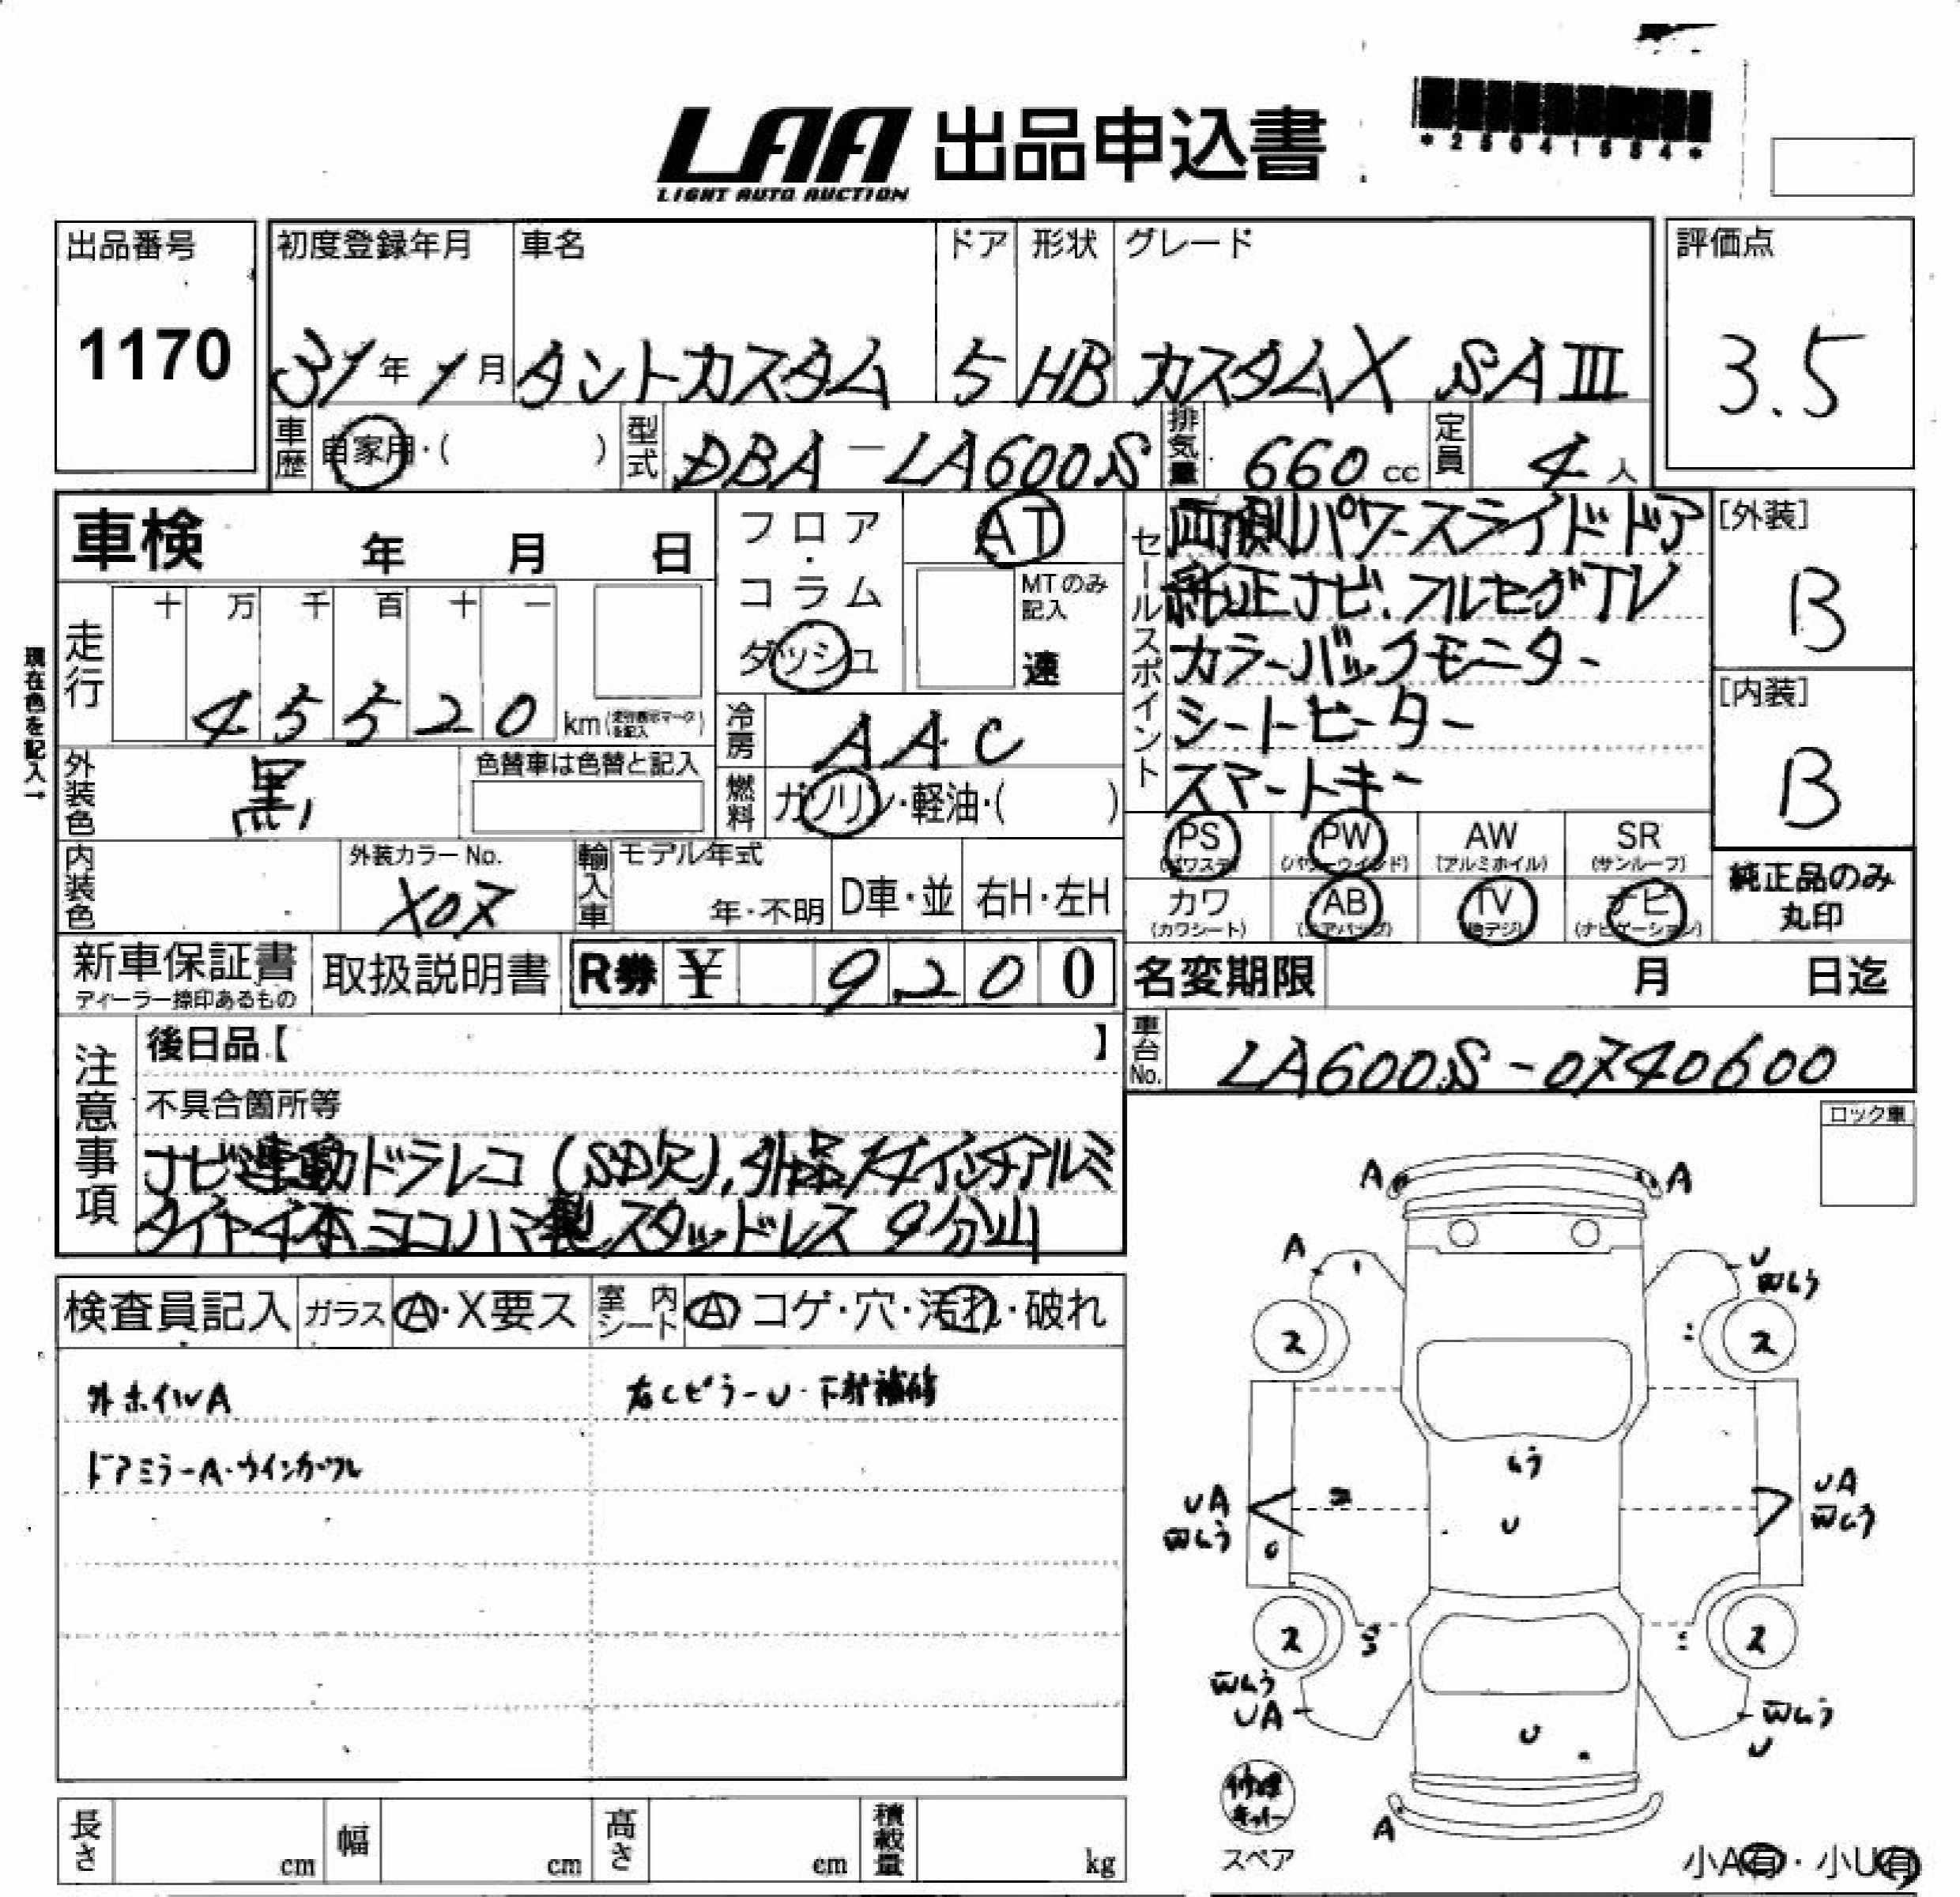 LAA 出品申込書
LIGHT AUTO AUCTION
*25041554*
出品番号
1170
初度登録年月 車名 ドア 形状 グレード
31年1月 タントカスタム 5 HB カスタムX SAⅢ
評価点
3.5
車歴 自家用・( ) 型式 DBA-LA600S 排気量 660cc 定員 4人
車検 年 月 日
フロア・コラム
ダッシュ
AT
MTのみ記入
速
現在色を記入→
走行 十 万 千 百 十 一
45520 km
冷房 AAC
外装色 黒 色替車は色替と記入
燃料 ガソリン・軽油・( )
内装色 外装カラーNo. X07
輸入車 モデル年式 年・不明 D車・並 右H・左H
セールスポイント
両側パワースライドドア
純正ナビ.フルセグTV
カラーバックモニター
シートヒーター
スマートキー
[外装]
B
[内装]
B
PS (パワステ) PW (パワーウインド) AW (アルミホイル) SR (サンルーフ)
カワ (カワシート) AB (エアバッグ) TV (地デジ) ナビ (ナビゲーション)
純正品のみ
丸印
新車保証書 取扱説明書 R券 ¥ 9,200
ディーラー捺印あるもの
名変期限 月 日迄
車台No. LA600S-0740600
注意事項
後日品【 】
不具合箇所等
ナビ連動ドラレコ(SD欠),外品14インチアルミ
タイヤ4本ヨコハマ製スタッドレス 9分山
ロック車
検査員記入 ガラス A・X要ス 室内シート A コゲ・穴・汚れ・破れ
外ホイルA 右Cピラーu・下部補修
ドアミラーA・ウインカーワレ
A A
A
U
Wムラ
ス ス
ムラ
U
UA
Wムラ
UA
Wムラ
ス ス
Wムラ
UA
Wムラ
U
U
A
修理
キット
スペア
小A有・小U有
長さ cm 幅 cm 高さ cm 積載量 kg